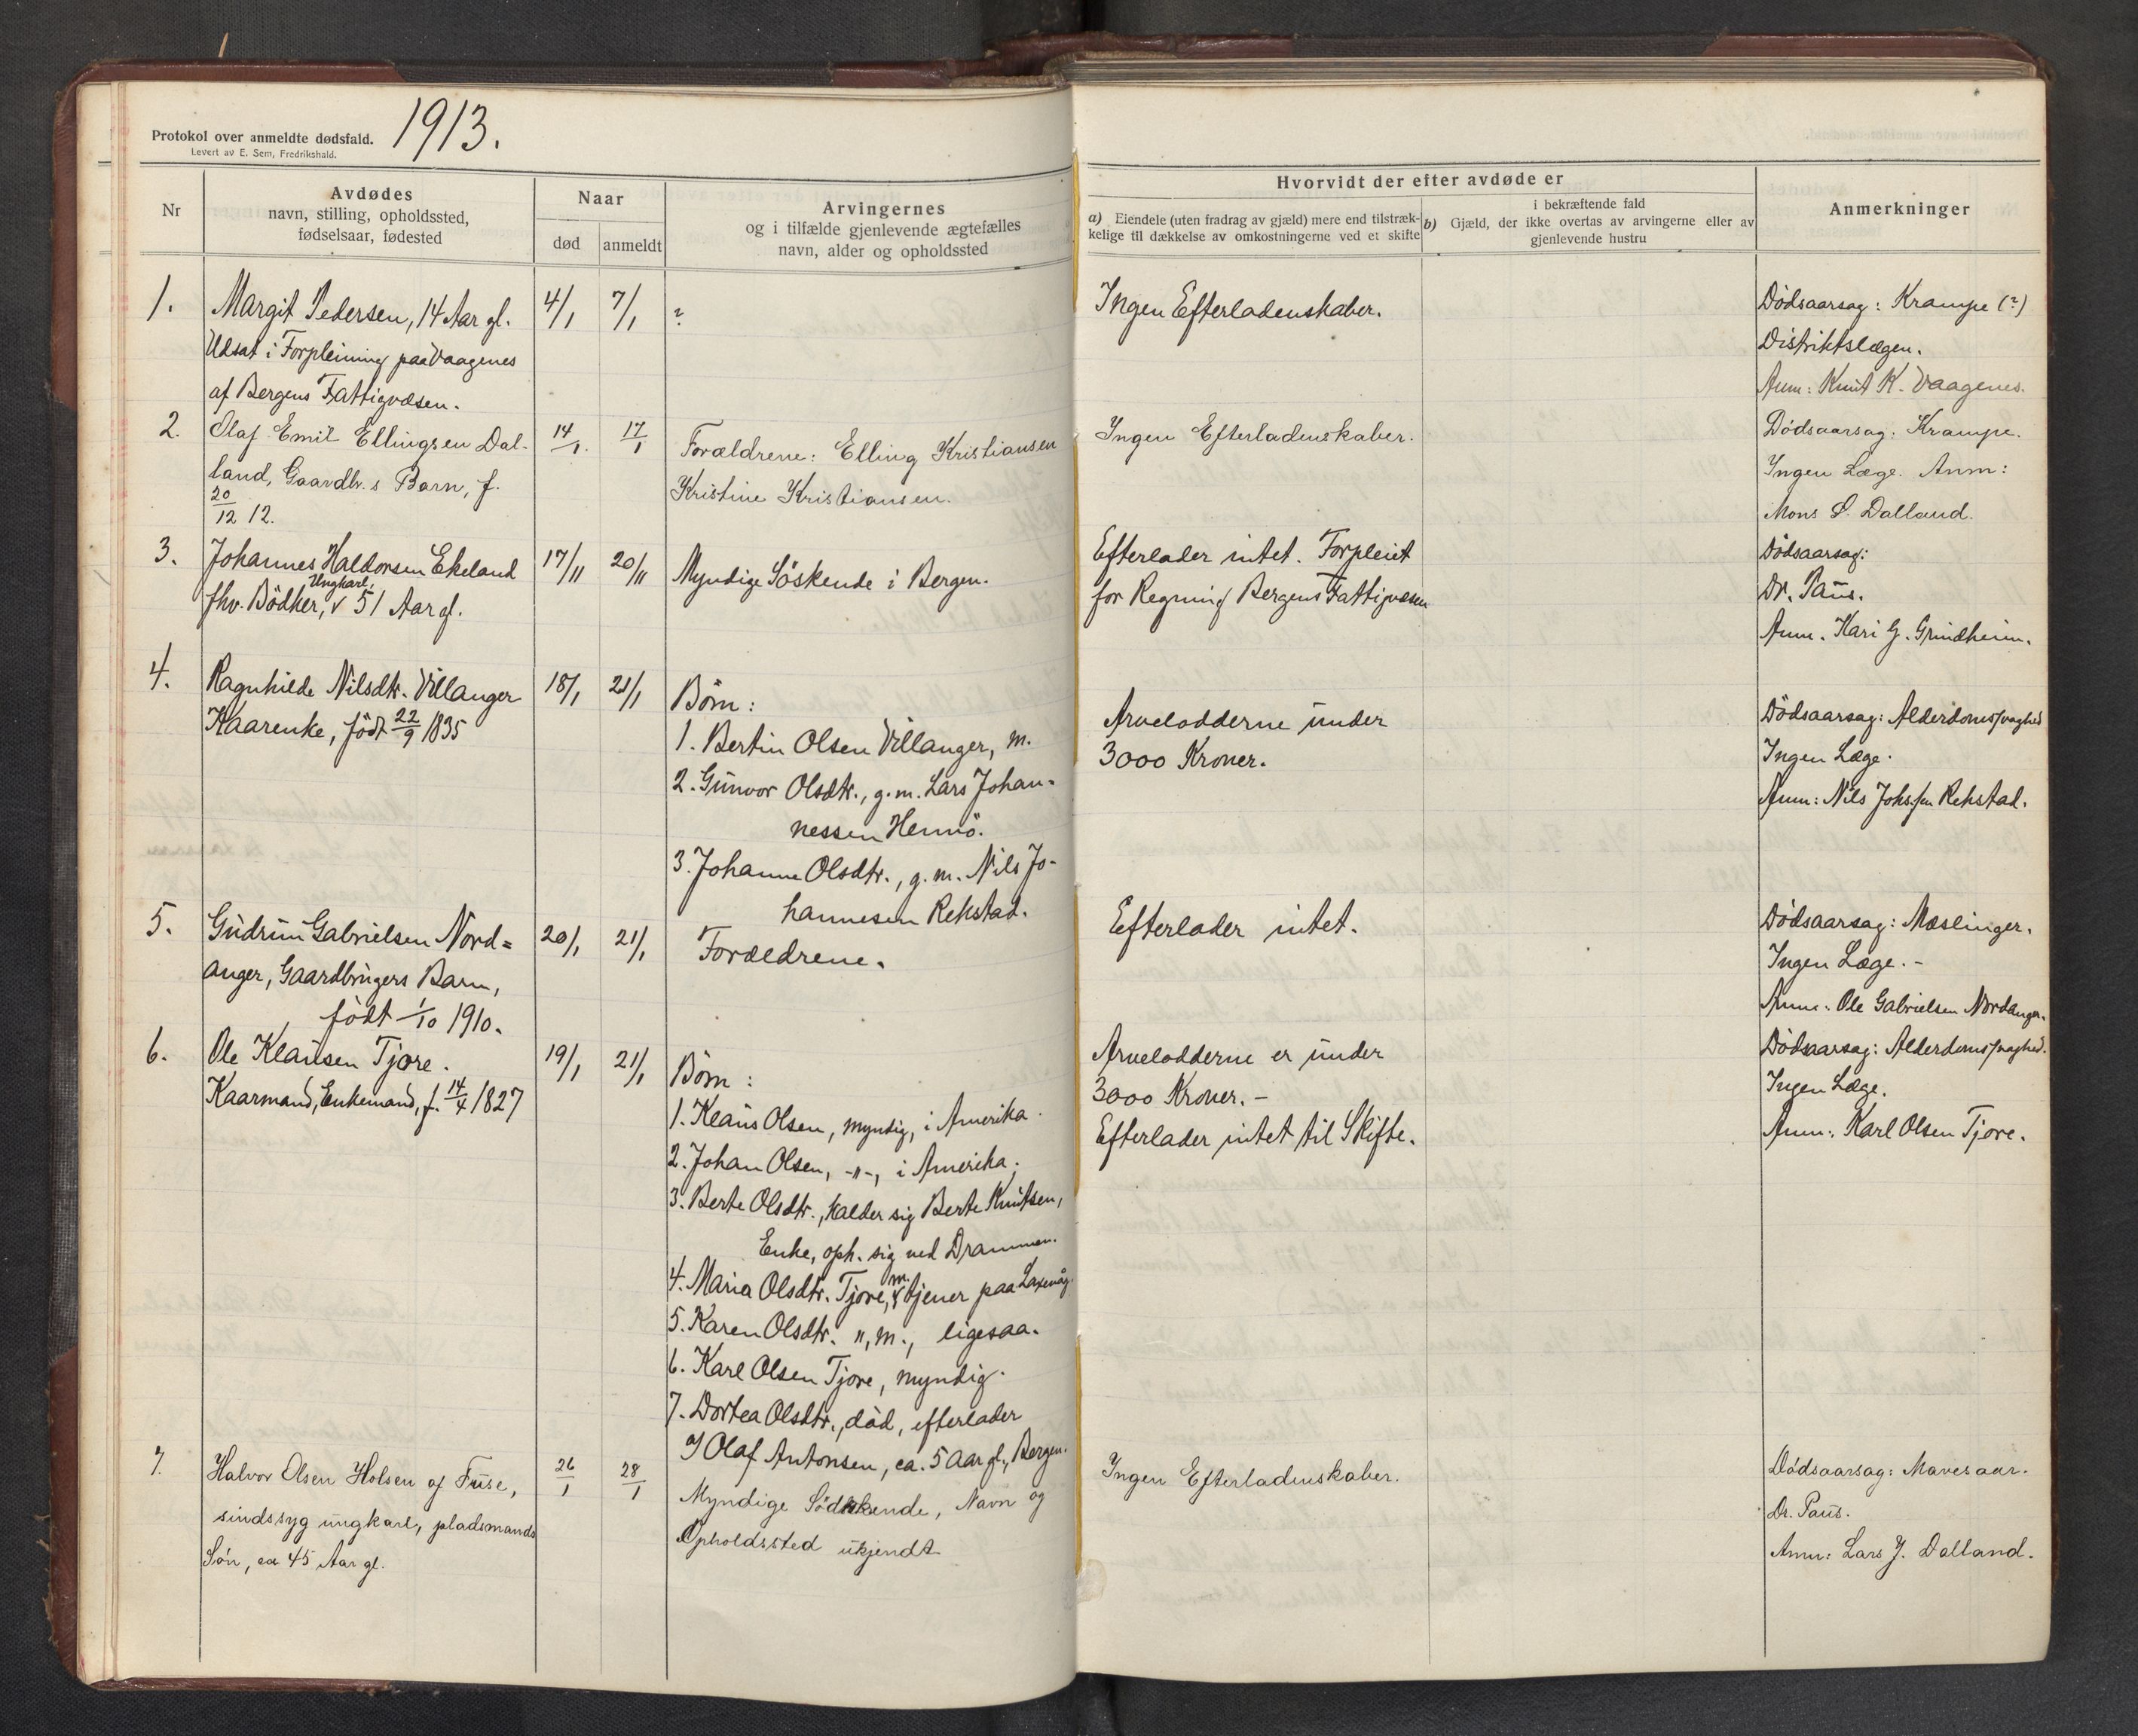 Protokol over anmeldte dødsfald.
Levert av E. Sem, Fredrikshald.
1913.
Nr
Avdødes
navn, stilling, opholdssted,
fødselsaar, fødested
Naar
død
anmeldt
Arvingernes
og i tilfælde gjenlevende ægtefælles
navn, alder og opholdssted
Hvorvidt der efter avdøde er
a) Eiendele (uten fradrag av gjæld) mere end tilstræk-
kelige til dækkelse av omkostningerne ved et skifte
i bekræftende fald
b) Gjæld, der ikke overtas av arvingerne eller av
gjenlevende hustru
Anmerkninger
1.
Margit Pedersen, 14 Aar gl.
Udsat i Forpleining paa Vaagenes
af Bergens Fattigvæsen.
4/1
7/1
?
Ingen Efterladenskaber.
Dødsaarsag: Krampe (?)
Distriktslægen.
Anm: Knut K. Vaagenes.
2.
Olaf Emil Ellingsen Dal-
land, Gaardbr.s Barn, f.
20/12 12.
14/1.
17/1
Forældrene: Elling Kristiansen
Kristine Kristiansen.
Ingen Efterladenskaber.
Dödsaarsag: Krampe.
Ingen Læge. Anm:
Mons S. Dalland.
3.
Johannes Haldorsen Ekeland
Ungkarl,
fhv. Bödker, v 51 Aar gl.
17/11
20/11
Myndige Söskende i Bergen.
Efterlader intet. Forpleiet
for Regning Bergens Fattigvæsen
Dödsaarsag:
Dr. Paus.
Anm. Kari G. Grindheim.
4.
Ragnhilde Nilsdtr. Villanger
Kaarenke, födt 22/9 1835
18/1
21/1
Börn:
1. Bertin Olsen Villanger, m.
2. Gunvor Olsdtr., g.m. Lars Johan-
nessen Hennö.
3. Johanne Olsdtr., g.m. Nils Jo-
hannesen Rekstad.
Arvelodderne under
3000 Kroner.
Dödsaarsag: Alderdomssvaghed
Ingen Læge.
Anm: Nils Johs.sen Rekstad.
5.
Gudrun Gabrielsen Nord=
anger, Gaardbrugers Barn,
födt 1/10 1910.
20/1
21/1
Forældrene.
Efterlader intet.
Dödsaarsag: Mæslinger.
Ingen Læge. -
Anm: Ole Gabrielsen Nordanger.
6.
Ole Klausen Tjore.
Kaarmand, Enkemand, f. 14/4 1827
19/1
21/1
Börn:
1. Klaus Olsen, myndig, i Amerika.
2. Johan Olsen, -"-, i Amerika.
3. Berte Olsdtr., kalder sig Berte Knutsen,
Enke, oph. sig ved Drammen.
m.
4. Maria Olsdtr. Tjore, v tjener paa Laxevåg.
5. Karen Olsdtr. ", m., ligesaa.
6. Karl Olsen Tjore, myndig.
7. Dortea Olsdtr., död, efterlader
Olaf Antonsen, ca. 5 Aar gl., Bergen.
Arvelodderne er under
3000 Kroner. -
Efterlader intet til Skifte.
Dödsaarsag: Alderdomssvaghed.
Ingen Læge.
Anm: Karl Olsen Tjore.
7.
Halvor Olsen Holsen af Fuse,
sindssyg ungkarl, pladsmands
Sön, ca 45 Aar gl.
26/1
28/1
Myndige Södskende, Navn og
Opholdssted ukjendt
Ingen Efterladenskaber.
Dödsaarsag: Mavesaar.
Dr. Paus.
Anm: Lars J. Dalland.